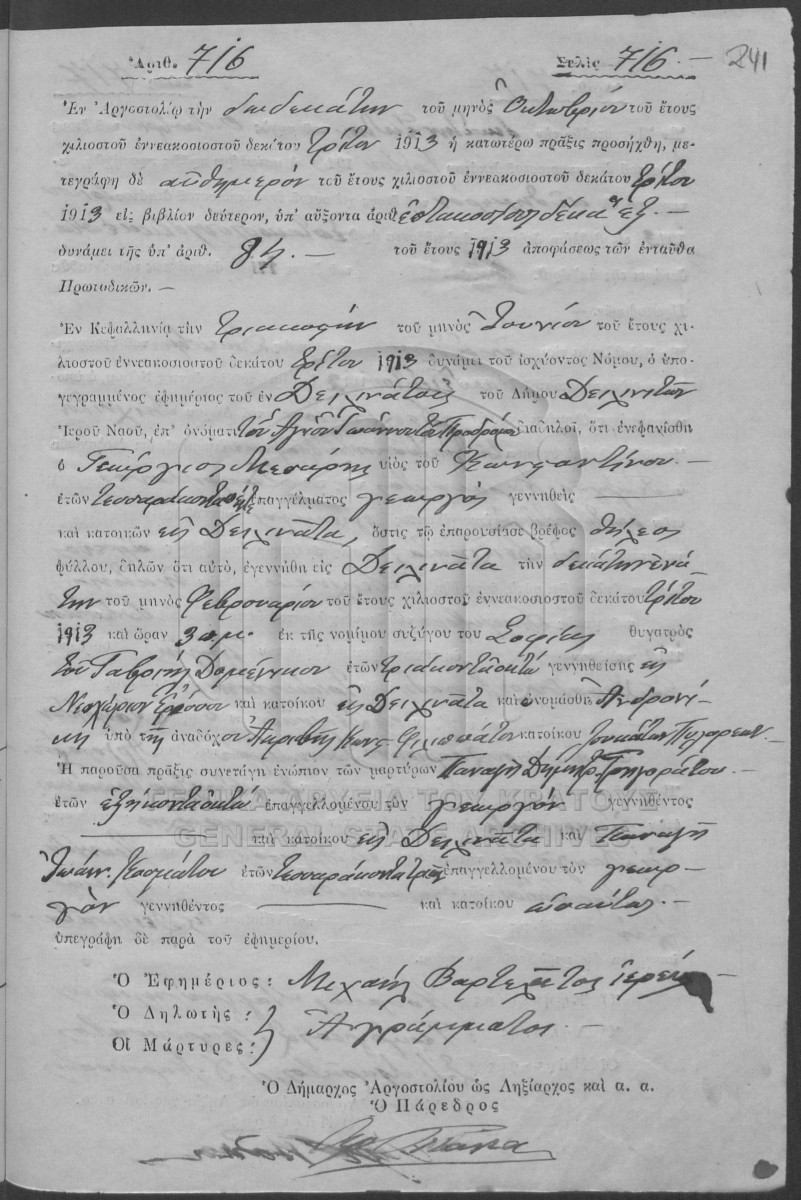 Ἀριθ. 716 Σελὶς 716 — 241
Ἐν Ἀργοστολίῳ τὴν δωδεκάτην τοῦ μηνὸς Ὀκτωβρίου τοῦ ἔτους
χιλιοστοῦ ἐννεακοσιοστοῦ δεκάτου τρίτου 1913 ἡ κατωτέρω πρᾶξις προσήχθη, με-
τεγράφη δὲ αὐθημερὸν τοῦ ἔτους χιλιοστοῦ ἐννεακοσιοστοῦ δεκάτου τρίτου
1913 εἰς βιβλίον δεύτερον, ὑπ' αὔξοντα ἀριθ. ἑπτακόσια δέκα ἕξ. —
δυνάμει τῆς ὑπ' ἀριθ. — τοῦ ἔτους 1913 ἀποφάσεως τῶν ἐνταῦθα
Πρωτοδικῶν. —
Ἐν Κεφαλληνίᾳ τὴν τριακοστὴν τοῦ μηνὸς Ἰουνίου τοῦ ἔτους χι-
λιοστοῦ ἐννεακοσιοστοῦ δεκάτου τρίτου 1913 δυνάμει τοῦ ἰσχύοντος Νόμου, ὁ ὑπο-
γεγραμμένος ἐφημέριος τοῦ ἐν Δειλινάτοις τοῦ Δήμου Δειλινατῶν
Ἱεροῦ Ναοῦ, ἐπ' ὀνόματι τοῦ Ἁγίου Ἰωάννου τοῦ Προδρόμου διαδηλοῖ, ὅτι ἐνεφανίσθη
ὁ Γεώργιος Μεσάρης υἱὸς τοῦ Κωνσταντίνου. —
ἐτῶν τεσσαράκοντα πέντε ἐπαγγέλματος γεωργὸς γεννηθεὶς —
καὶ κατοικῶν εἰς Δειλινᾶτα, ὅστις τῷ ἐπαρουσίασε βρέφος θήλεος
φύλλου, δηλῶν ὅτι αὐτὸ, ἐγεννήθη εἰς Δειλινᾶτα τὴν δεκάτην ἐνά-
την τοῦ μηνὸς Φεβρουαρίου τοῦ ἔτους χιλιοστοῦ ἐννεακοσιοστοῦ δεκάτου τρίτου
1913 καὶ ὥραν 3 π.μ. ἐκ τῆς νομίμου συζύγου του Σοφίας θυγατρὸς
τοῦ Γαβριὴλ Δομένικου ἐτῶν τριάκοντα ὀκτὼ γεννηθείσης εἰς
Νεοχώριον καὶ κατοίκου εἰς Δειλινᾶτα καὶ ὠνομάσθη Ἀνδρονί-
κη ὑπὸ τῆς ἀναδόχου Ἀκριβῆς Κωνσ. Φιλιππάτου κατοίκου Πυλαρέων. —
Ἡ παροῦσα πρᾶξις συνετάγη ἐνώπιον τῶν μαρτύρων Παναγῆ Δημητρ. Γρηγοράτου. —
ἐτῶν ἑξήκοντα ὀκτὼ ἐπαγγελλομένου τὸν γεωργὸν γεννηθέντος
— καὶ κατοίκου εἰς Δειλινᾶτα καὶ Παναγῆ
Ἰωάνν. Κοσμάτου ἐτῶν τεσσαράκοντα τριῶν ἐπαγγελλομένου τὸν γεωρ-
γὸν γεννηθέντος — καὶ κατοίκου ὡσαύτως. —
ὑπεγράφη δὲ παρὰ τοῦ ἐφημερίου.
Ὁ Ἐφημέριος: Μιχαὴλ Βαρτελάτος ἱερεύς —
Ὁ Δηλωτὴς:
Ἀγράμματοι. —
Οἱ Μάρτυρες:
Ὁ Δήμαρχος Ἀργοστολίου ὡς Ληξίαρχος καὶ α. α.
Ὁ Πάρεδρος
ΓΕΝΙΚΑ ΑΡΧΕΙΑ ΤΟΥ ΚΡΑΤΟΥΣ
GENERAL STATE ARCHIVES